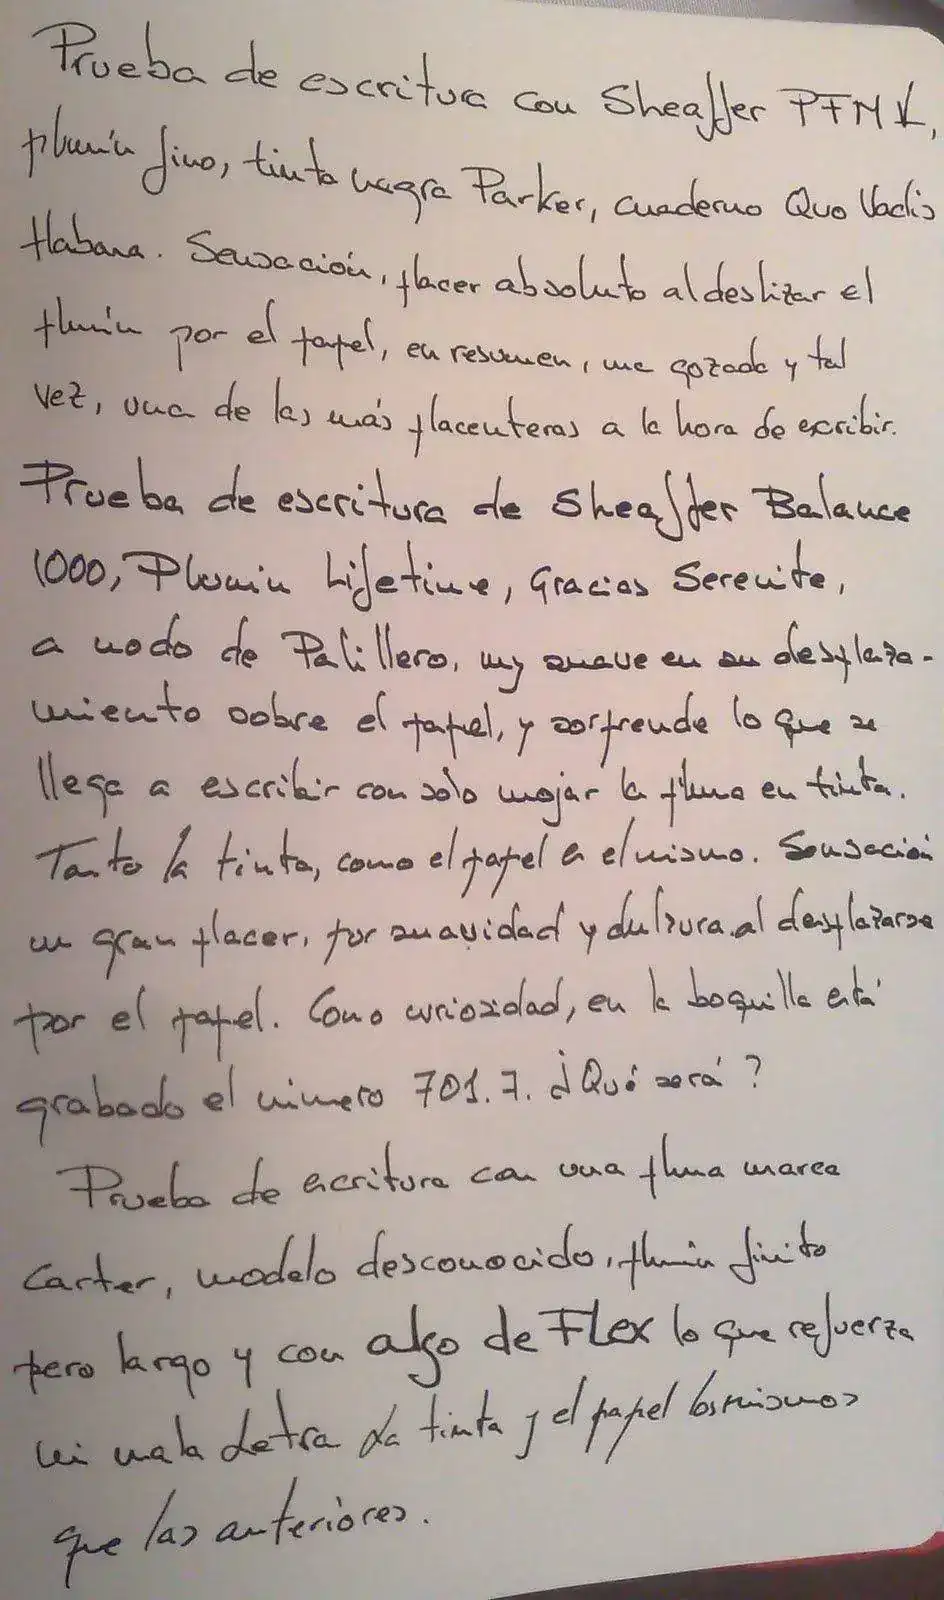 Prueba de escritura con Sheaffer PFM V,
plumín fino, tinta negra Parker, cuaderno Quo Vadis
Habana. Sensación, placer absoluto al deslizar el
plumín por el papel, en resumen, una gozada y tal
vez, una de las más placenteras a la hora de escribir.
Prueba de escritura de Sheaffer Balance
1000, Plumin Lifetime, Gracias Serenite,
a modo de Palillero, muy suave en su desplaza-
miento sobre el papel, y sorprende lo que se
llega a escribir con solo mojar la pluma en tinta.
Tanto la tinta, como el papel es el mismo. Sensación
un gran placer, por suavidad y dulzura al desplazarse
por el papel. Como curiosidad, en la boquilla está
grabado el número 701.7. ¿Qué será?
Prueba de escritura con una pluma marca
Carter, modelo desconocido, plumín finito
pero largo y con algo de Flex lo que refuerza
mi mala letra La tinta y el papel los mismos
que las anteriores.